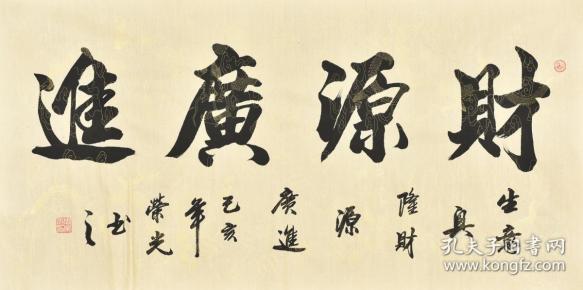 財源廣進
生意
興
隆財
源
廣進
己亥
年
榮光
书
之
孔夫子旧书网
kongfz.com